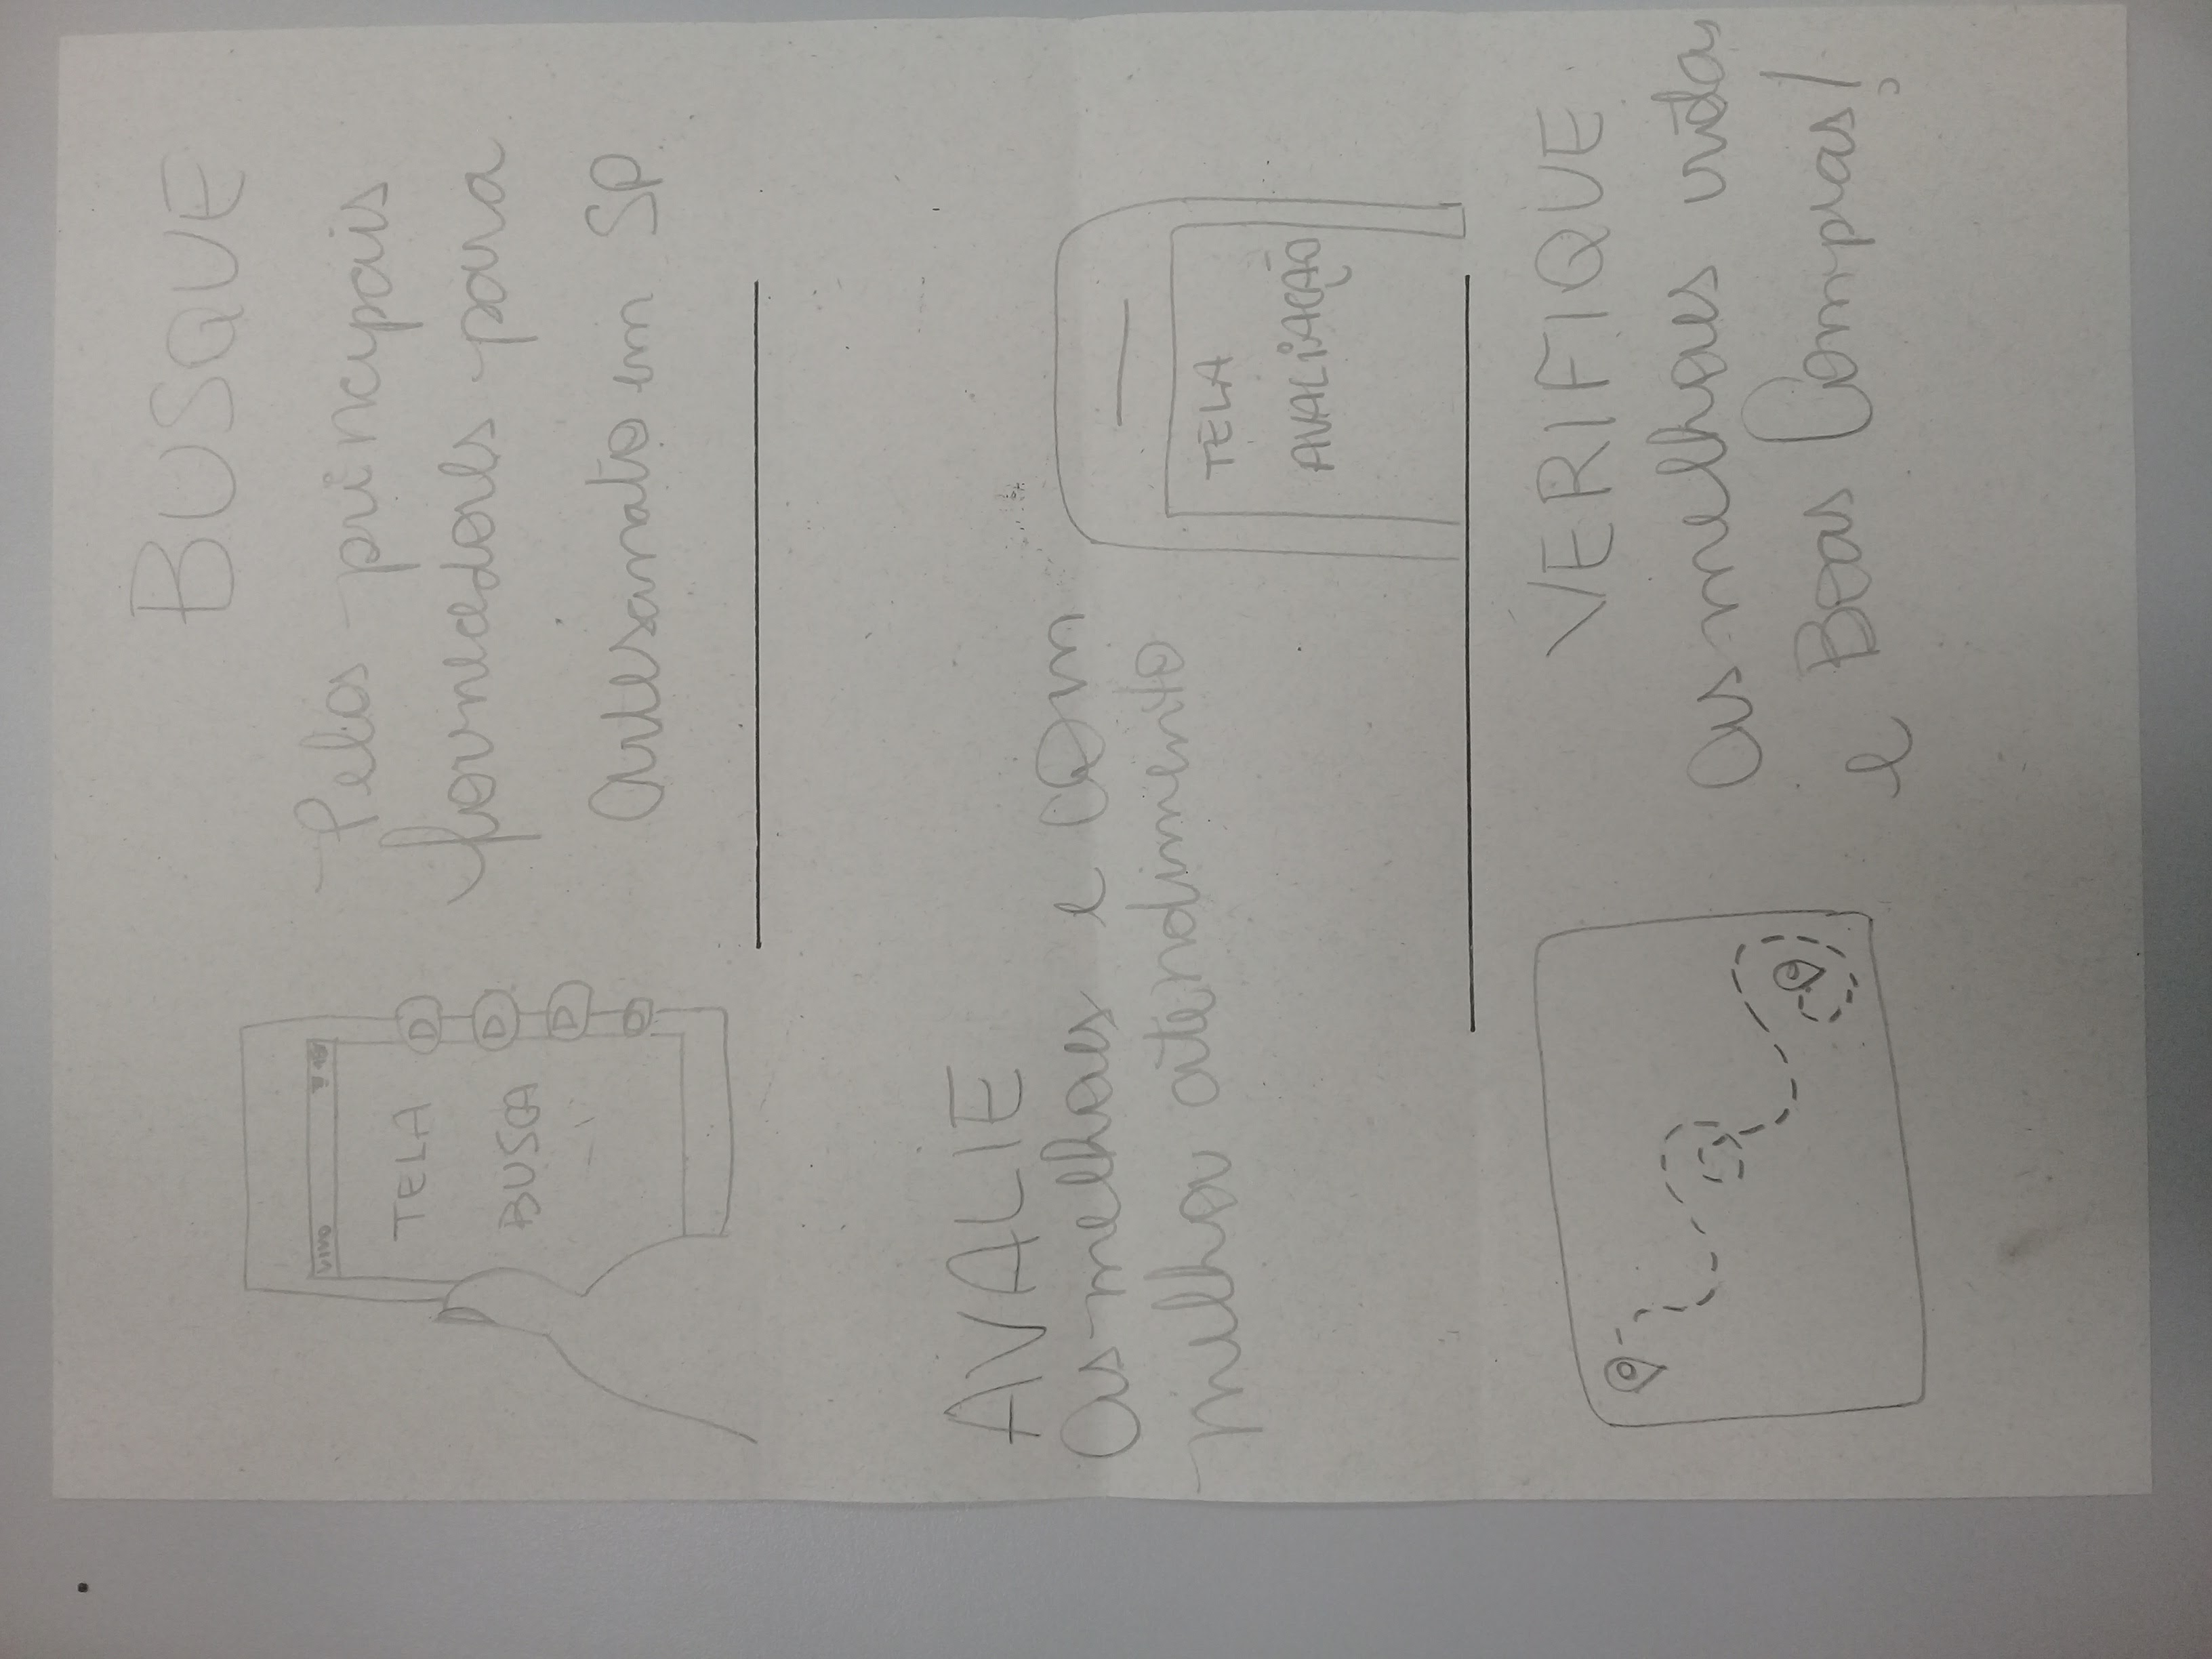 BUSQUE
Pelos principais
fornecedores para
artesanato em SP
VIVO
TELA
BUSCA
AVALIE
Os melhores e com
melhor atendimento
TELA
AVALIAÇÃO
VERIFIQUE
as melhores
e Boas Compras!